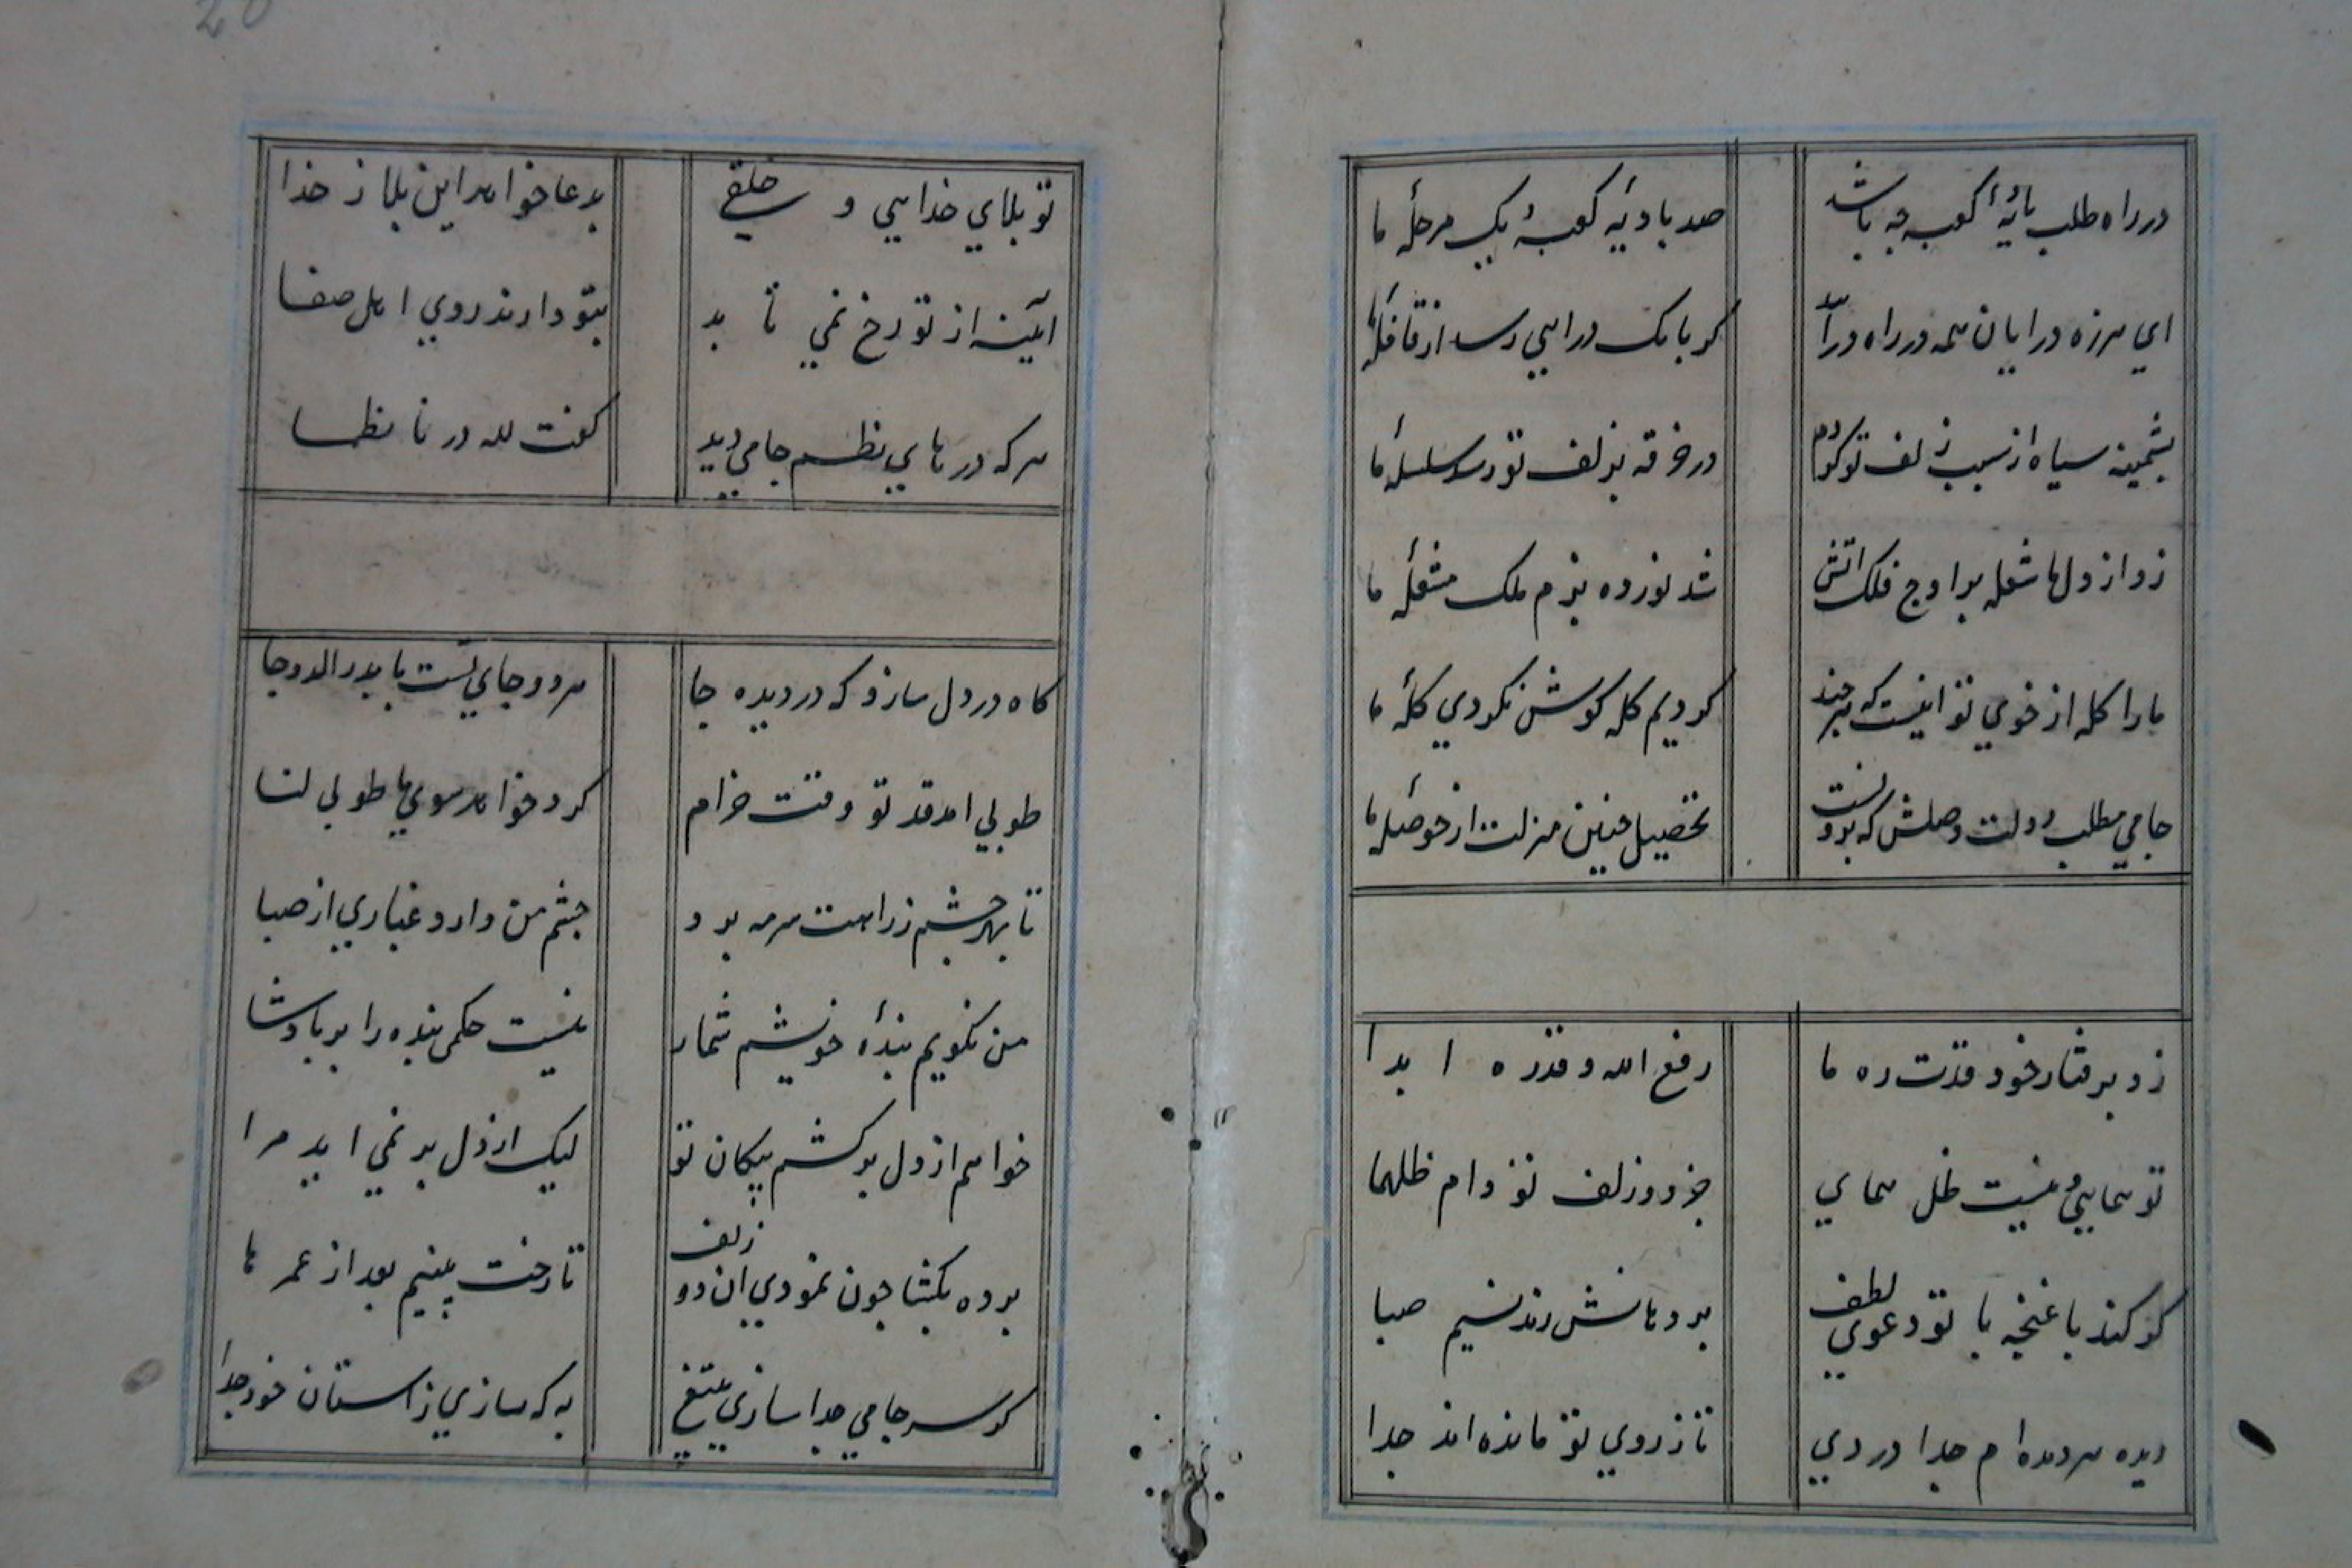 20
در راه طلب بائیهٔ کعبه چه باشد
صد بادیهٔ کعبهٔ یک مرحلهٔ ما
ای هرزه درایان همه در راه درآیید
کر بانک درایی رسد از قافلهٔ ما
پشمینه سیاه از سبب زلف تو کردم
در خرقه بزلف تو رسد سلسلهٔ ما
زد از دل ما شعله بر اوج فلک اتش
شد نور ده بزم ملک مشعلهٔ ما
ما را کله از خوی تو اینست که هر چند
کردیم کله کوش نکردی کلهٔ ما
جامی مطلب دولت وصلش که بر ونست
تحصیل چنین منزلت از حوصلهٔ ما
زد برفتار خود قدت ره ما
رفع الله قدره ابدا
تو همایی و نیست ظل همای
جز دو زلف تو دام ظلهما
کر کند با غنچه با تو دعوی لطف
بر دهانش زند نسیم صبا
دیده هر دیده ام جدا دردی
تا ز روی تو مانده اند جدا
تو بلای خدایی و خلقی
بدعا خواهد این بلا ز خدا
ایینه از تو رخ نمی تابد
بتو دارند روی اهل صفا
هر که درهای نظم جامی دید
کفت لله در ناظما
کاه در دل ساز و که در دیده جا
هر دو جای تست یا بدر الدوجا
طوبی امد قد تو وقت خرام
کرد خواهد سوی ما طوبی لنا
تا بهر چشم ز راهت سرمه برد
چشم من دارد غباری از صبا
من نکویم بندهٔ خویشم شمار
نیست حکمی بنده را بر بادشا
خواهم از دل بر کشم پیکان تو
لیک از دل بر نمی اید مرا
برده بکشا چون نمودی ان دو زلف
تا رخت بینیم بعد از عمر ها
کر سر جامی جدا سازی بتیغ
به که سازی ز استان خود جدا